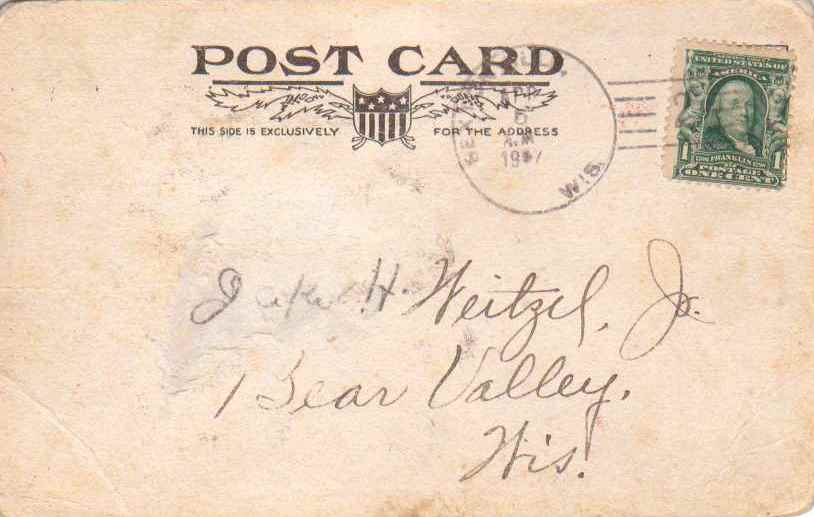 POST CARD
THIS SIDE IS EXCLUSIVELY FOR THE ADDRESS
5
WIS.
UNITED STATES OF
AMERICA
1 FRANKLIN 1
POSTAGE
ONE CENT
H. Weitzel, Jr.
Bear Valley,
Wis.